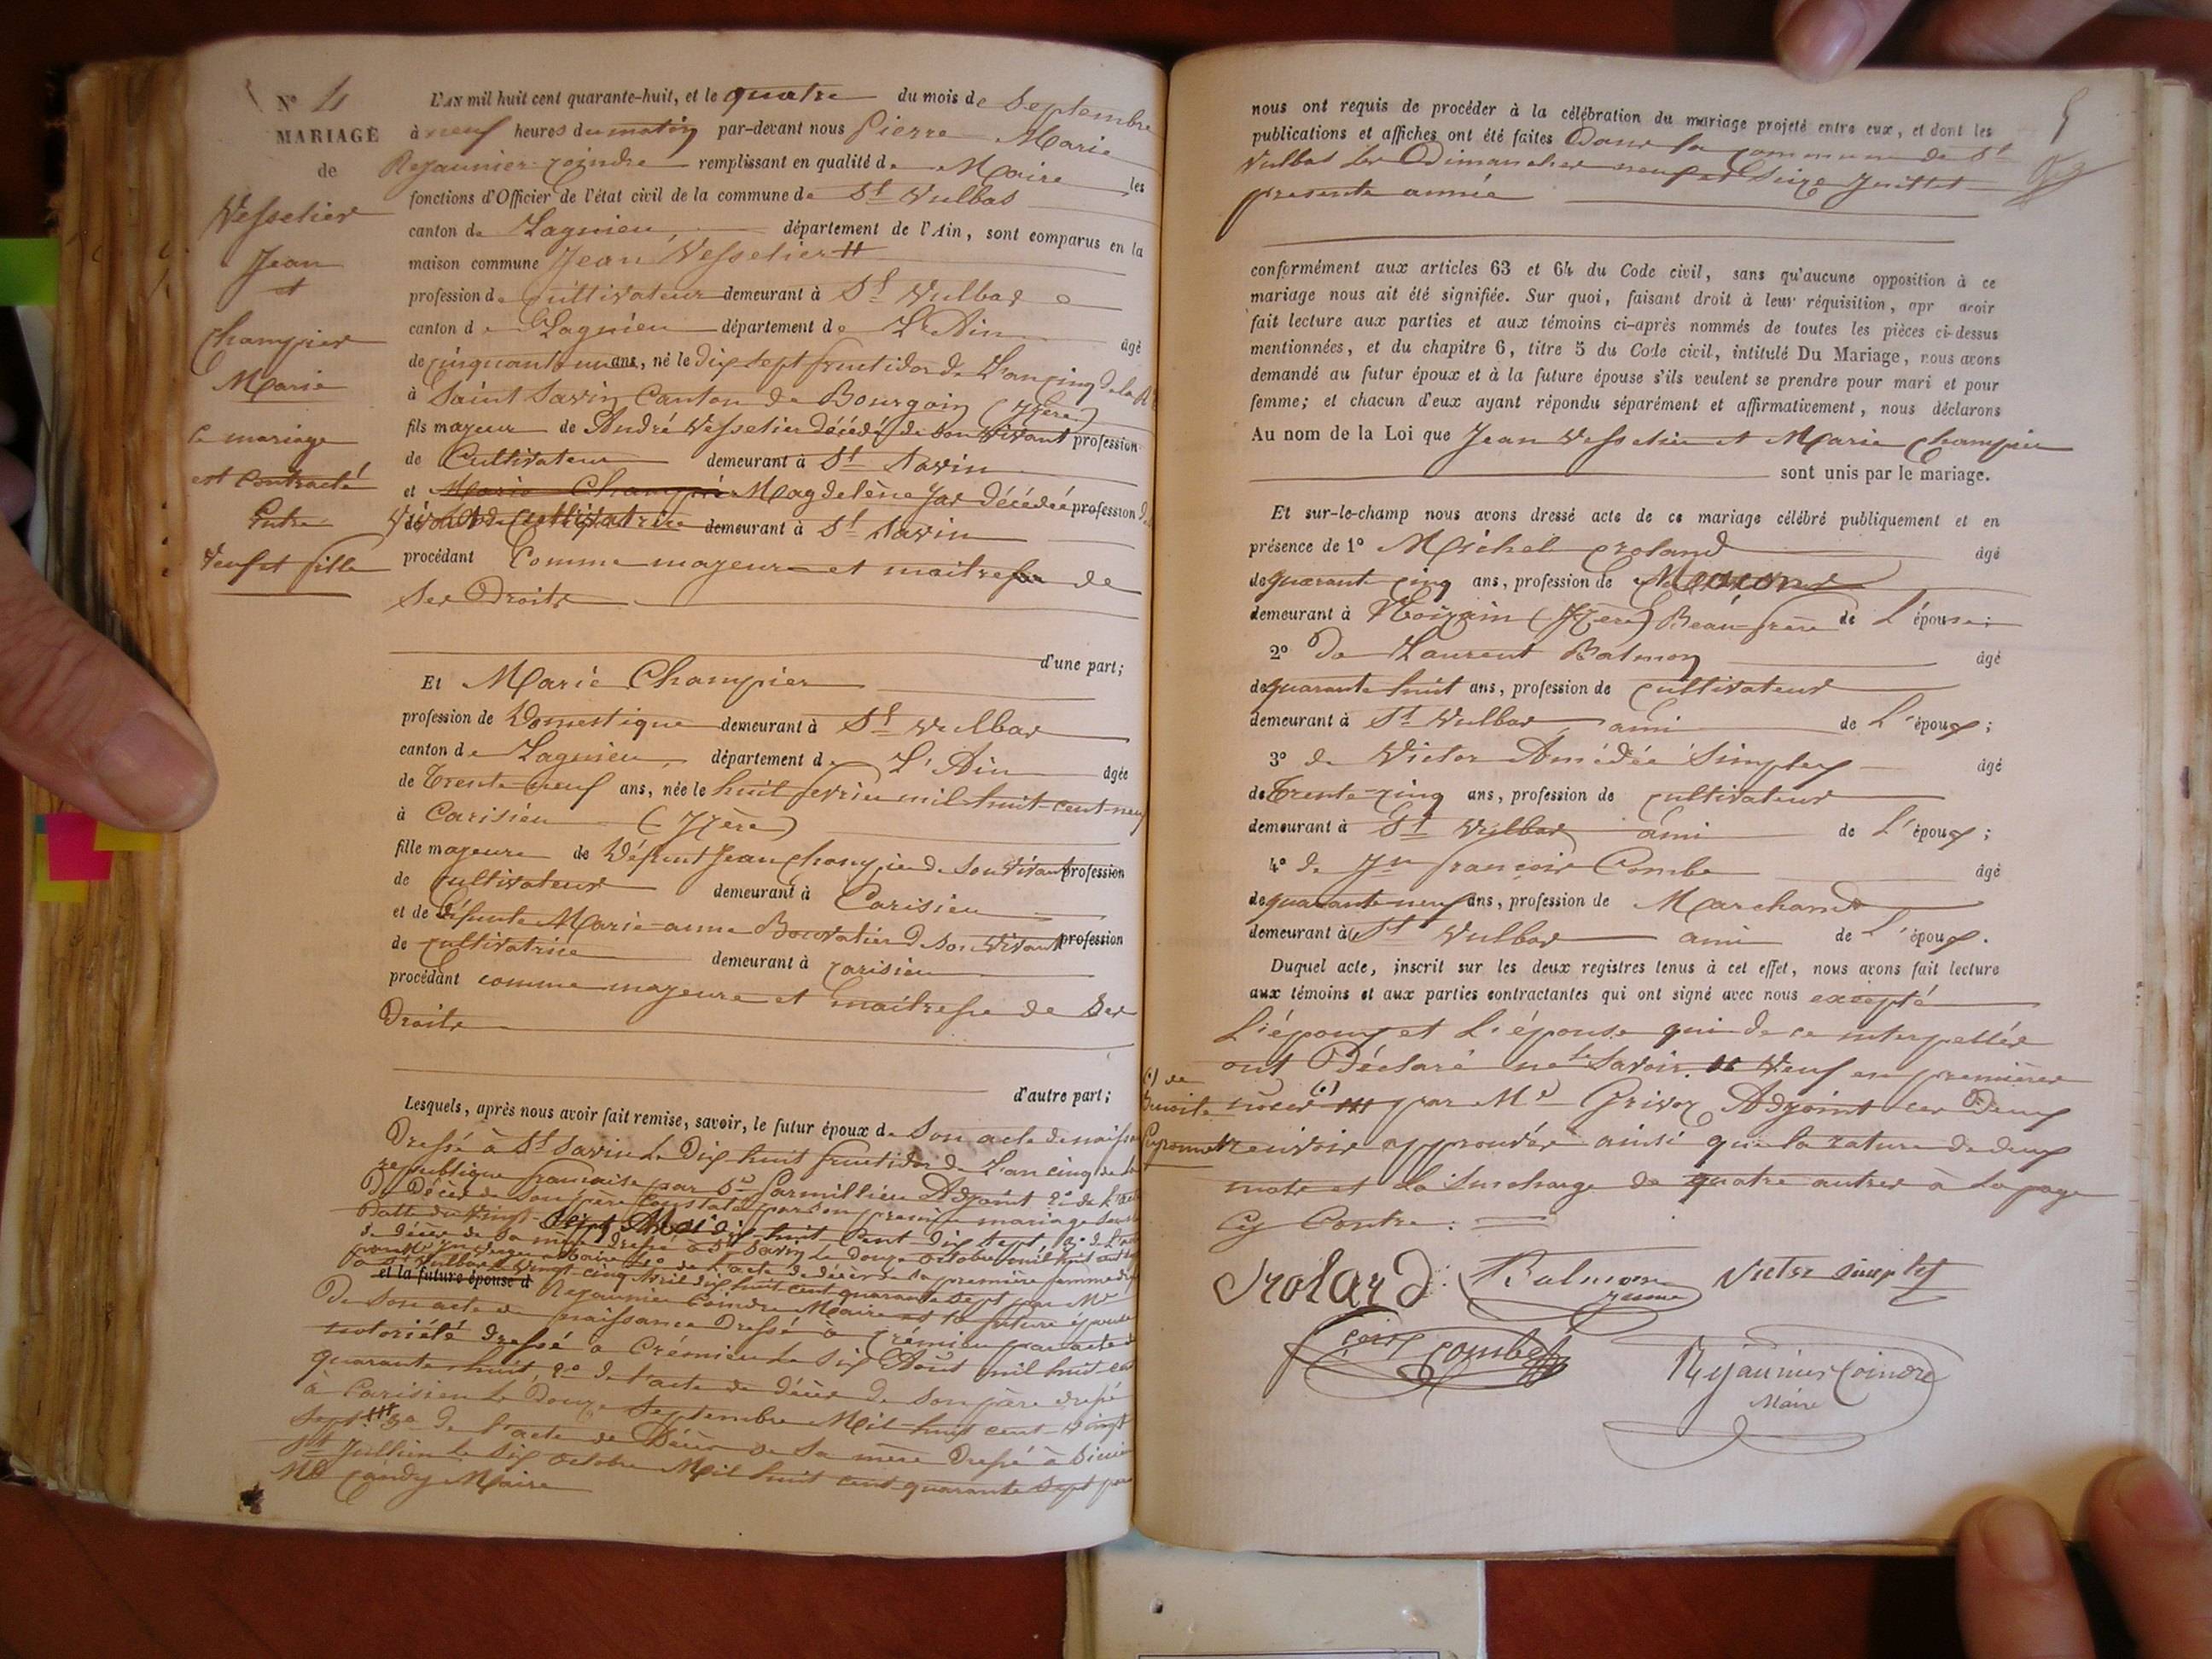 N° 4
MARIAGE
de
Vesselier
Jean
et
Champier
Marie
le mariage
est contracté
Entre
veuf et fille
L'AN mil huit cent quarante-huit, et le quatre du mois de Septembre
à neuf heures du matin par-devant nous Pierre Marie
Rejaunier-Coindre remplissant en qualité de Maire les
fonctions d'Officier de l'état civil de la commune de St Vulbas
canton de Lagnieu, département de l'Ain, sont comparus en la
maison commune Jean Vesselier
profession de cultivateur demeurant à St Vulbas
canton de Lagnieu département de L'Ain âgé
de cinquante un ans, né le dix sept fructidor de L'an cinq de la
à Saint Savin Canton de Bourgoin (Yzère)
fils majeur de André Vesselier décédé de son vivant profession
de Cultivateur demeurant à St Savin
et Marie Champier Magdelène Jas décédée profession
de Cultivatrice demeurant à St Savin
procédant Comme majeur et maitre de
Ses Droits
d'une part;
Et Marie Champier
profession de Domestique demeurant à St Vulbas
canton de Lagnieu, département de L'Ain âgée
de Trente-neuf ans, née le huit fevrier mil huit-cent-neuf
à Carisieu (Yzère)
fille majeure de Défunt Jean Champier de Son vivant profession
de cultivateur demeurant à Carisieu
et de défunte Marie-anne Bouvatier de Son vivant profession
de cultivatrice demeurant à Carisieu
procédant comme majeure et maitresse de Ses
Droits
d'autre part;
Lesquels, après nous avoir fait remise, savoir, le futur époux de Son acte de naissance
Dressé à St Savin le Dix huit fructidor de L'an cinq de la
republique française par Sr Parmillieu Adjoint 2° de l'acte
De Décès de son père Constaté par son premier mariage
Datté du vingt-Sept Mai dix huit Cent dix Sept, 3° de l'acte
de décès de sa mère dressé à St Savin Le Douze octobre mil huit cent
maire 4° de l'acte de décès de sa première femme
à St Vulbas le vingt-cinq Avril dix huit cent quarante Sept par Mr
et la future épouse d Rejaunier Coindre Maire et la future épouse
De Son acte de naissance Dressé à Crémieu par acte de
notoriété dressé à Crémieu le Six Août mil huit cent
quarante huit, 2° de l'acte de décès de Son père dressé
à Carisieu le Douze Septembre Mil-huit cent vingt
Sept. 3° de l'acte de Décès de Sa mère Dressé à
St Jullien le Six octobre Mil huit cent quarante Sept par
Mr Candy Maire
nous ont requis de procéder à la célébration du mariage projeté entre eux, et dont les
publications et affiches ont été faites Dans la commune de St
Vulbas les Dimanches neuf et Seize Juillet
presente année
5
conformément aux articles 63 et 64 du Code civil, sans qu'aucune opposition à ce
mariage nous ait été signifiée. Sur quoi, faisant droit à leur réquisition, apr avoir
fait lecture aux parties et aux témoins ci-après nommés de toutes les pièces ci-dessus
mentionnées, et du chapitre 6, titre 5 du Code civil, intitulé Du Mariage, nous avons
demandé au futur époux et à la future épouse s'ils veulent se prendre pour mari et pour
femme; et chacun d'eux ayant répondu séparément et affirmativement, nous déclarons
Au nom de la Loi que Jean Vesselier et Marie Champier
sont unis par le mariage.
Et sur-le-champ nous avons dressé acte de ce mariage célébré publiquement et en
présence de 1° Michel Drolard âgé
de quarante cinq ans, profession de Maçon
demeurant à (Yzère) Beau-frère de L'épouse;
2° De Laurent Balmon âgé
de quarante huit ans, profession de cultivateur
demeurant à St Vulbas ami de L'époux;
3° de Victor Amédée Simplex âgé
de Trente-cinq ans, profession de cultivateur
demeurant à St Vulbas ami de L'époux;
4° de Jn françois Combe âgé
de quarante neuf ans, profession de Marchand
demeurant à St Vulbas ami de L'époux.
Duquel acte, inscrit sur les deux registres tenus à cet effet, nous avons fait lecture
aux témoins et aux parties contractantes qui ont signé avec nous excepté
L'époux et L'épouse qui de ce interpellés
ont Déclaré ne le Savoir. Veuf en premières
(.) de
Benoite noces (.) par Mr Grivoz Adjoint ces Deux
Peyronnet renvois approuvés ainsi que la rature de deux
mots et la Surcharge de quatre autres à la page
Cy Contre.
Drolard Balmon Victor Simplex
Combe Rejaunier Coindre
Maire